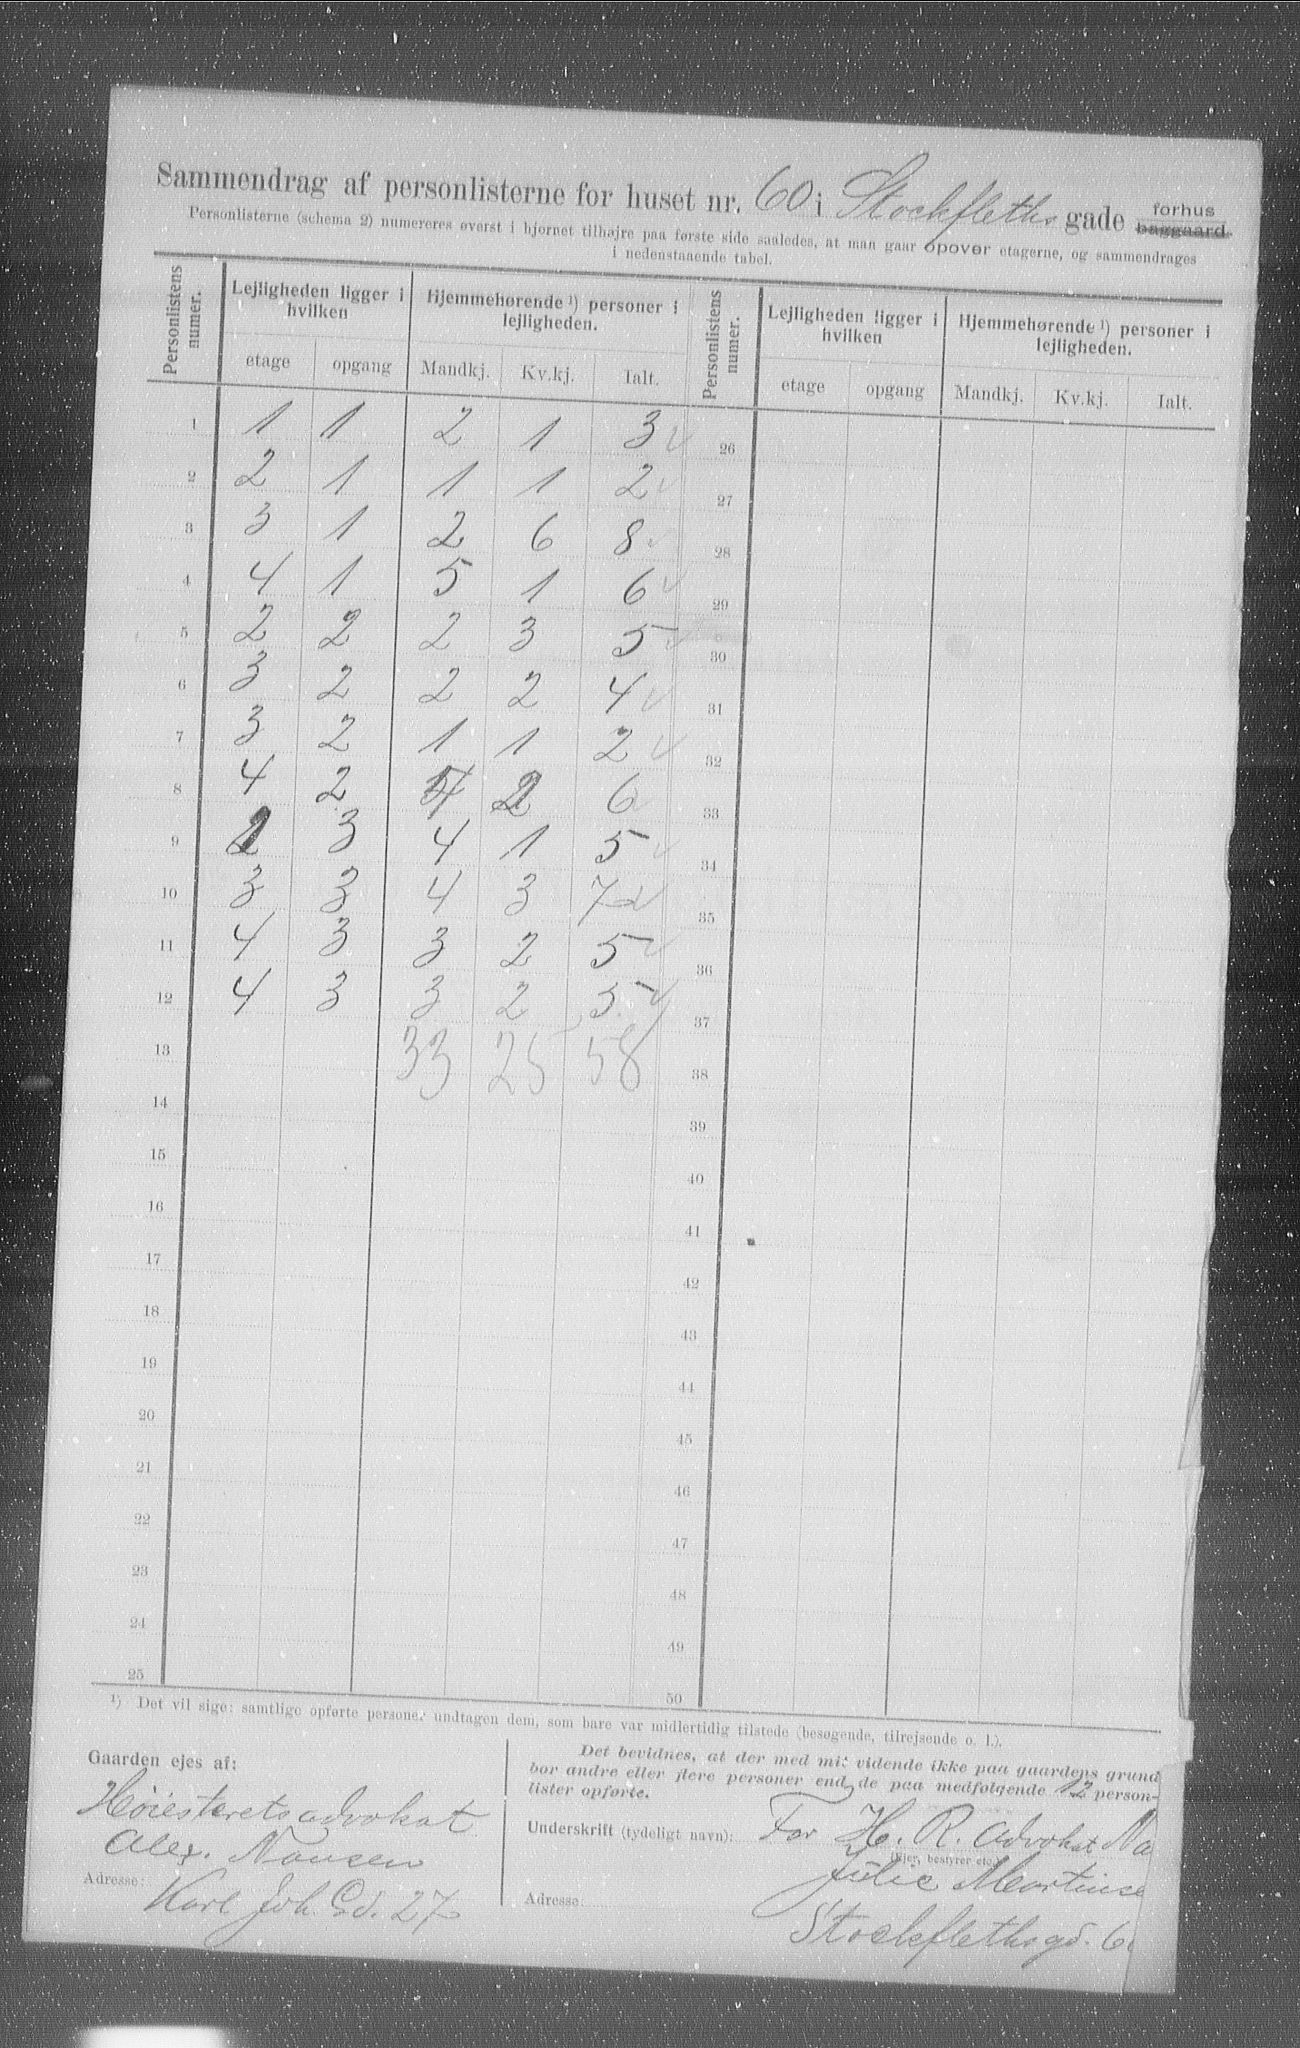 Sammendrag af personlisterne for huset nr. 60 i Stockfleths gade forhus baggaard.
Personlisterne (schema 2) numereres øverst i hjørnet tilhøjre paa første side saaledes, at man gaar opover etagerne, og sammendrages
i nedenstaaende tabel.
Personlistens numer. Lejligheden ligger i hvilken Hjemmehørende 1) personer i lejligheden. Personlistens numer. Lejligheden ligger i hvilken Hjemmehørende 1) personer i lejligheden.
etage opgang Mandkj. Kv.kj. Ialt. etage opgang Mandkj. Kv.kj. Ialt.
1 1 1 2 1 3 26
2 2 1 1 1 2 27
3 3 1 2 6 8 28
4 4 1 5 1 6 29
5 2 2 2 3 5 30
6 3 2 2 2 4 31
7 3 2 1 1 2 32
8 4 2 4 2 6 33
9 2 3 4 1 5 34
10 3 3 4 3 7 35
11 4 3 3 2 5 36
12 4 3 3 2 5 37
13 33 25 58 38
14 39
15 40
16 41
17 42
18 43
19 44
20 45
21 46
22 47
23 48
24 49
25 50
1) Det vil sige: samtlige opførte personer undtagen dem, som bare var midlertidig tilstede (besøgende, tilrejsende o. l.).
Gaarden ejes af:
Høiesteretsadvokat
Alex. Nansen
Adresse:
Karl Joh. Gd. 27
Det bevidnes, at der med mit vidende ikke paa gaardens grund
bor andre eller flere personer end de paa medfølgende 12 person-
lister opførte.
Underskrift (tydeligt navn): For H. R. Advokat Na
(Ejer, bestyrer etc.)
Julie Martinse
Adresse:
Stockflethsgd. 6